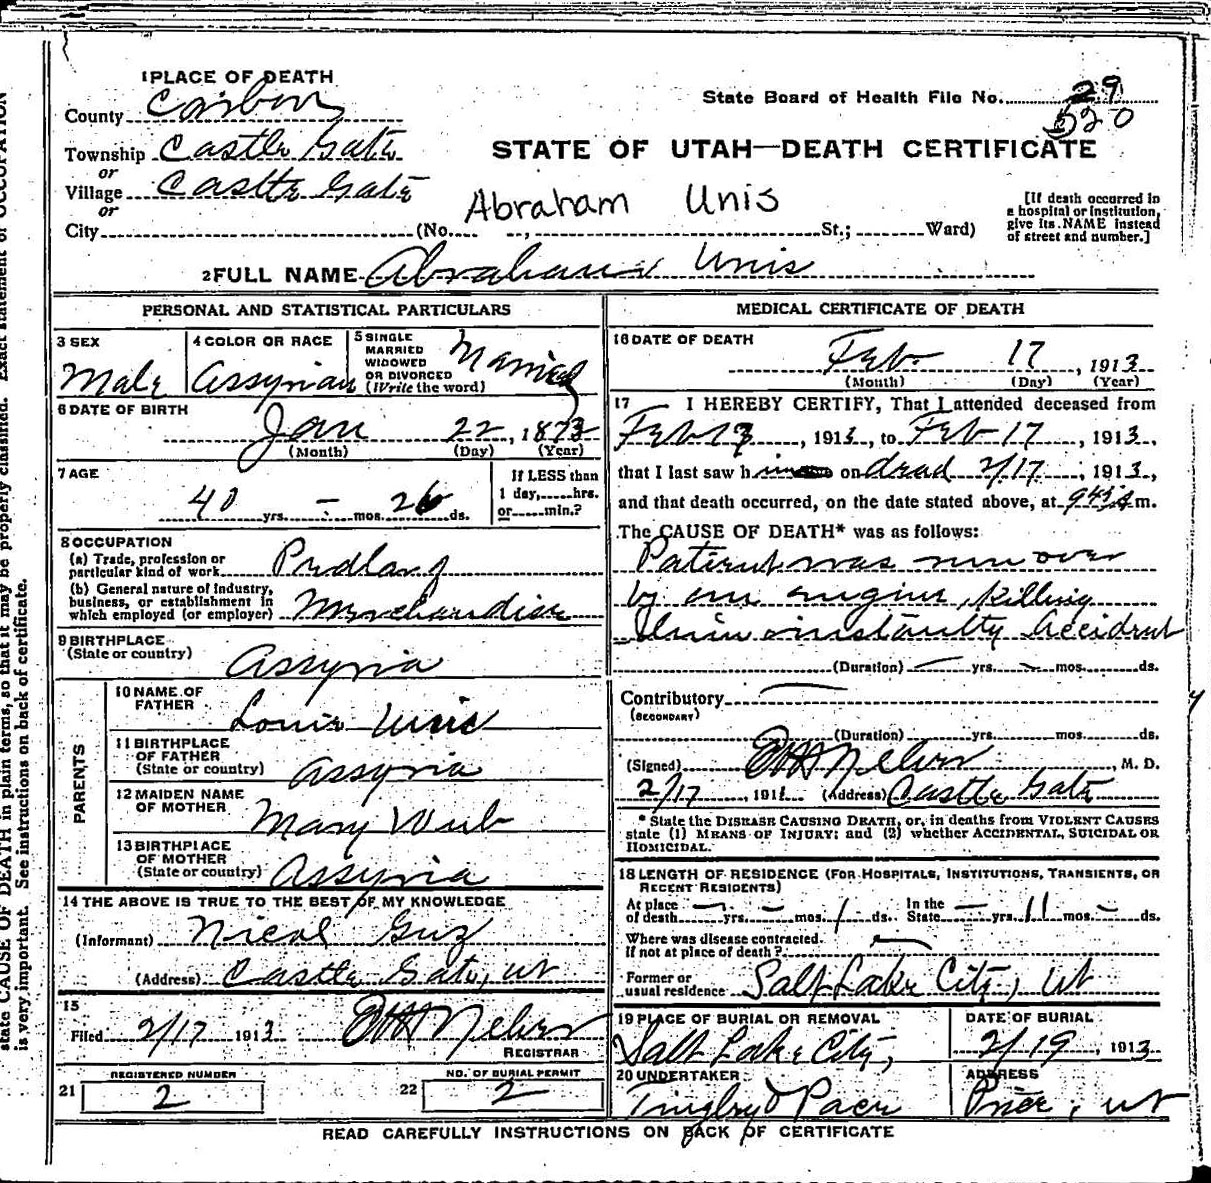 1 PLACE OF DEATH
County Carbon
Township Castle Gate
or
Village Castle Gate
or
City (No. St.; Ward)
State Board of Health File No. 29
520
STATE OF UTAH—DEATH CERTIFICATE
Abraham Unis
[If death occurred in
a hospital or institution,
give its NAME instead
of street and number.]
2 FULL NAME Abraham Unis
PERSONAL AND STATISTICAL PARTICULARS
3 SEX
Male
4 COLOR OR RACE
Assyrian
5 SINGLE
MARRIED
WIDOWED
OR DIVORCED
(Write the word)
Married
6 DATE OF BIRTH
Jan 22, 1873
(Month) (Day) (Year)
7 AGE
40 yrs. - mos. 26 ds.
If LESS than
1 day, hrs.
or min.?
8 OCCUPATION
(a) Trade, profession or
particular kind of work
(b) General nature of industry,
business, or establishment in
which employed (or employer) Merchandise
9 BIRTHPLACE
(State or country) Assyria
PARENTS
10 NAME OF
FATHER Louis Unis
11 BIRTHPLACE
OF FATHER
(State or country) Assyria
12 MAIDEN NAME
OF MOTHER Mary
13 BIRTHPLACE
OF MOTHER
(State or country) Assyria
14 THE ABOVE IS TRUE TO THE BEST OF MY KNOWLEDGE
(Informant)
(Address) Castle Gate, Ut
15
Filed 2/17 1913
REGISTRAR
REGISTERED NUMBER
21 2
NO. OF BURIAL PERMIT
22 2
MEDICAL CERTIFICATE OF DEATH
16 DATE OF DEATH
Feb. 17, 1913
(Month) (Day) (Year)
17 I HEREBY CERTIFY, That I attended deceased from
Feb 17, 1913, to Feb 17, 1913,
that I last saw him on dead 2/17, 1913,
and that death occurred, on the date stated above, at m.
The CAUSE OF DEATH* was as follows:
Patient was run over
by an engine, killing
him instantly Accident
(Duration) yrs. mos. ds.
Contributory
(SECONDARY)
(Duration) yrs. mos. ds.
(Signed) , M. D.
2/17, 191 (Address) Castle Gate
* State the DISEASE CAUSING DEATH, or, in deaths from VIOLENT CAUSES
state (1) MEANS OF INJURY; and (2) whether ACCIDENTAL, SUICIDAL OR
HOMICIDAL.
18 LENGTH OF RESIDENCE (FOR HOSPITALS, INSTITUTIONS, TRANSIENTS, OR
RECENT RESIDENTS)
At place In the
of death - yrs. - mos. 1 ds. State - yrs. 11 mos. - ds.
Where was disease contracted
if not at place of death?
Former or
usual residence Salt Lake City, Ut
19 PLACE OF BURIAL OR REMOVAL
Salt Lake City,
DATE OF BURIAL
2/19, 1913
20 UNDERTAKER
ADDRESS
Price, Ut
READ CAREFULLY INSTRUCTIONS ON BACK OF CERTIFICATE
state CAUSE OF DEATH in plain terms, so that it may be properly classified. Exact statement of OCCUPATION
is very important. See instructions on back of certificate.